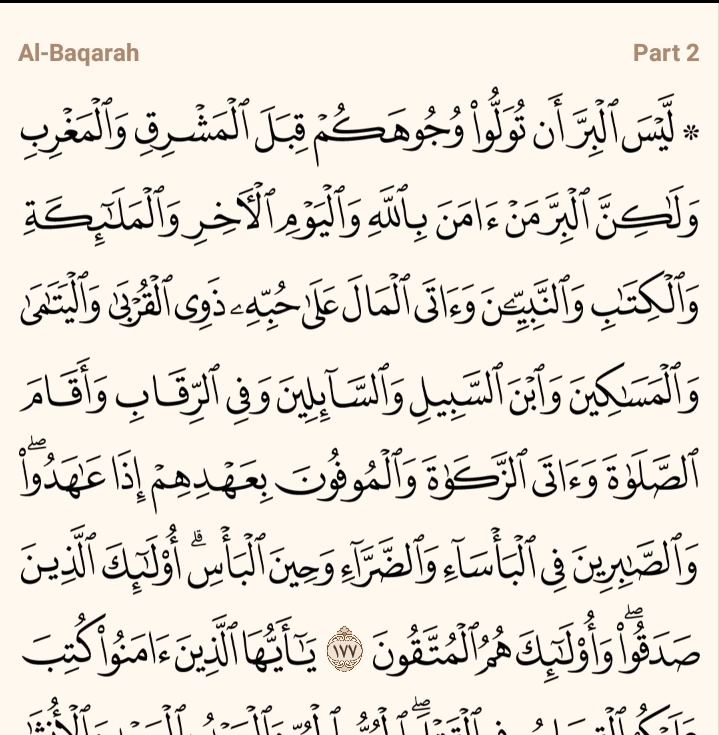 Al-Baqarah
Part 2
* لَّيْسَ ٱلْبِرَّ أَن تُوَلُّوا۟ وُجُوهَكُمْ قِبَلَ ٱلْمَشْرِقِ وَٱلْمَغْرِبِ
وَلَٰكِنَّ ٱلْبِرَّ مَنْ ءَامَنَ بِٱللَّهِ وَٱلْيَوْمِ ٱلْأَخِرِ وَٱلْمَلَٰٓئِكَةِ
وَٱلْكِتَٰبِ وَٱلنَّبِيِّۦنَ وَءَاتَى ٱلْمَالَ عَلَىٰ حُبِّهِۦ ذَوِى ٱلْقُرْبَىٰ وَٱلْيَتَٰمَىٰ
وَٱلْمَسَٰكِينَ وَٱبْنَ ٱلسَّبِيلِ وَٱلسَّآئِلِينَ وَفِى ٱلرِّقَابِ وَأَقَامَ
ٱلصَّلَوٰةَ وَءَاتَى ٱلزَّكَوٰةَ وَٱلْمُوفُونَ بِعَهْدِهِمْ إِذَا عَٰهَدُوا۟ ۖ
وَٱلصَّٰبِرِينَ فِى ٱلْبَأْسَآءِ وَٱلضَّرَّآءِ وَحِينَ ٱلْبَأْسِ ۗ أُو۟لَٰٓئِكَ ٱلَّذِينَ
صَدَقُوا۟ ۖ وَأُو۟لَٰٓئِكَ هُمُ ٱلْمُتَّقُونَ ١٧٧ يَٰٓأَيُّهَا ٱلَّذِينَ ءَامَنُوا۟ كُتِبَ